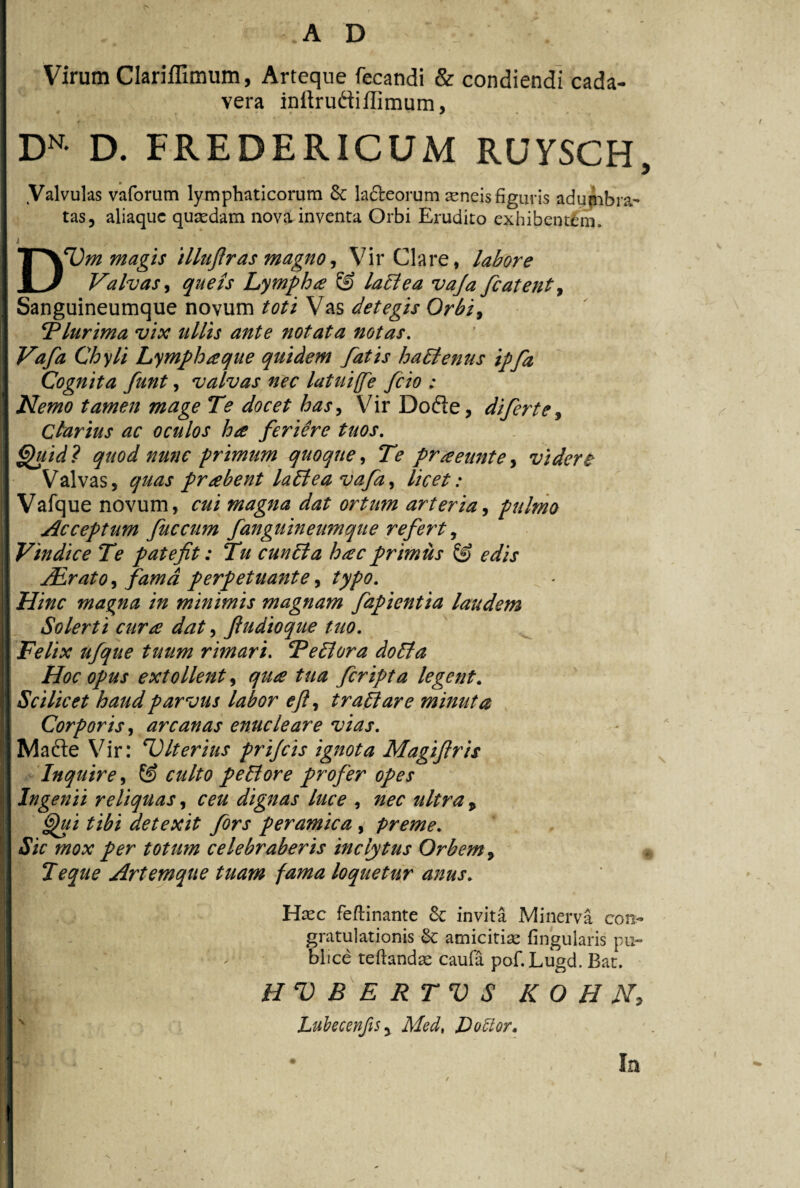 A D
Virum Clariſſimum, Arteque ſecandi & condiendi cada-
vera inſtructiſſimum,
Dᴺ· D. FREDERICUM RUYSCH,
Valvulas vaſorum lymphaticorum & lacteorum æneis figuris adumbra-
tas, aliaque quædam nova inventa Orbi Erudito exhibentem.
DVm magis illuſtras magno, Vir Clare, labore
Valvas, queîs Lymphæ & lactea vaſa ſcatent,
Sanguineumque novum toti Vas detegis Orbi,
Plurima vix ullis ante notata notas.
Vaſa Chyli Lymphæque quidem ſatis hactenus ipſa
Cognita ſunt, valvas nec latuiſſe ſcio:
Nemo tamen mage Te docet has, Vir Docte, diſerte,
Clarius ac oculos hæ feriêre tuos.
Quid? quod nunc primum quoque, Te præeunte, videre
Valvas, quas præbent lactea vaſa, licet:
Vaſque novum, cui magna dat ortum arteria, pulmo
Acceptum ſuccum ſanguineumque refert,
Vindice Te patefit: Tu cuncta hæc primus & edis
Ærato, famâ perpetuante, typo.
Hinc magna in minimis magnam ſapientia laudem
Solerti curæ dat, ſtudioque tuo.
Felix uſque tuum rimari. Pectora docta
Hoc opus extollent, quæ tua ſcripta legent.
Scilicet haud parvus labor eſt, tractare minuta
Corporis, arcanas enucleare vias.
Macte Vir: Vlterius priſcis ignota Magiſtris
Inquire, & culto pectore profer opes
Ingenii reliquas, ceu dignas luce, nec ultra,
Qui tibi detexit ſors peramica, preme.
Sic mox per totum celebraberis inclytus Orbem,
Teque Artemque tuam fama loquetur anus.
Hæc feſtinante & invitâ Minervâ con-
gratulationis & amicitiæ ſingularis pu-
blicè teſtandæ cauſâ poſ. Lugd. Bat.
HVBERTVS KOHN,
Lubecenſis, Med. Doctor.
In